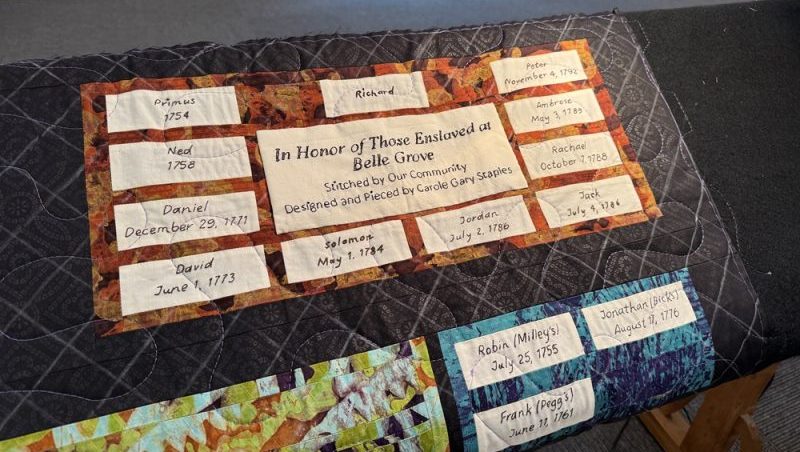 Primus
1754
Ned
1758
Daniel
December 29, 1771
David
June 1, 1773
Richard
In Honor of Those Enslaved at
Belle Grove
Stitched by Our Community
Designed and Pieced by Carole Gary Staples
Solomon
May 1, 1784
Jordan
July 2, 1786
Peter
November 4, 1792
Ambrose
May 3, 1789
Rachael
October 7, 1788
Jack
July 4, 1786
Robin (Milley's)
July 25, 1755
Jonathan (Dick's)
August 17, 1776
Frank (Pegg's)
June 17, 1761